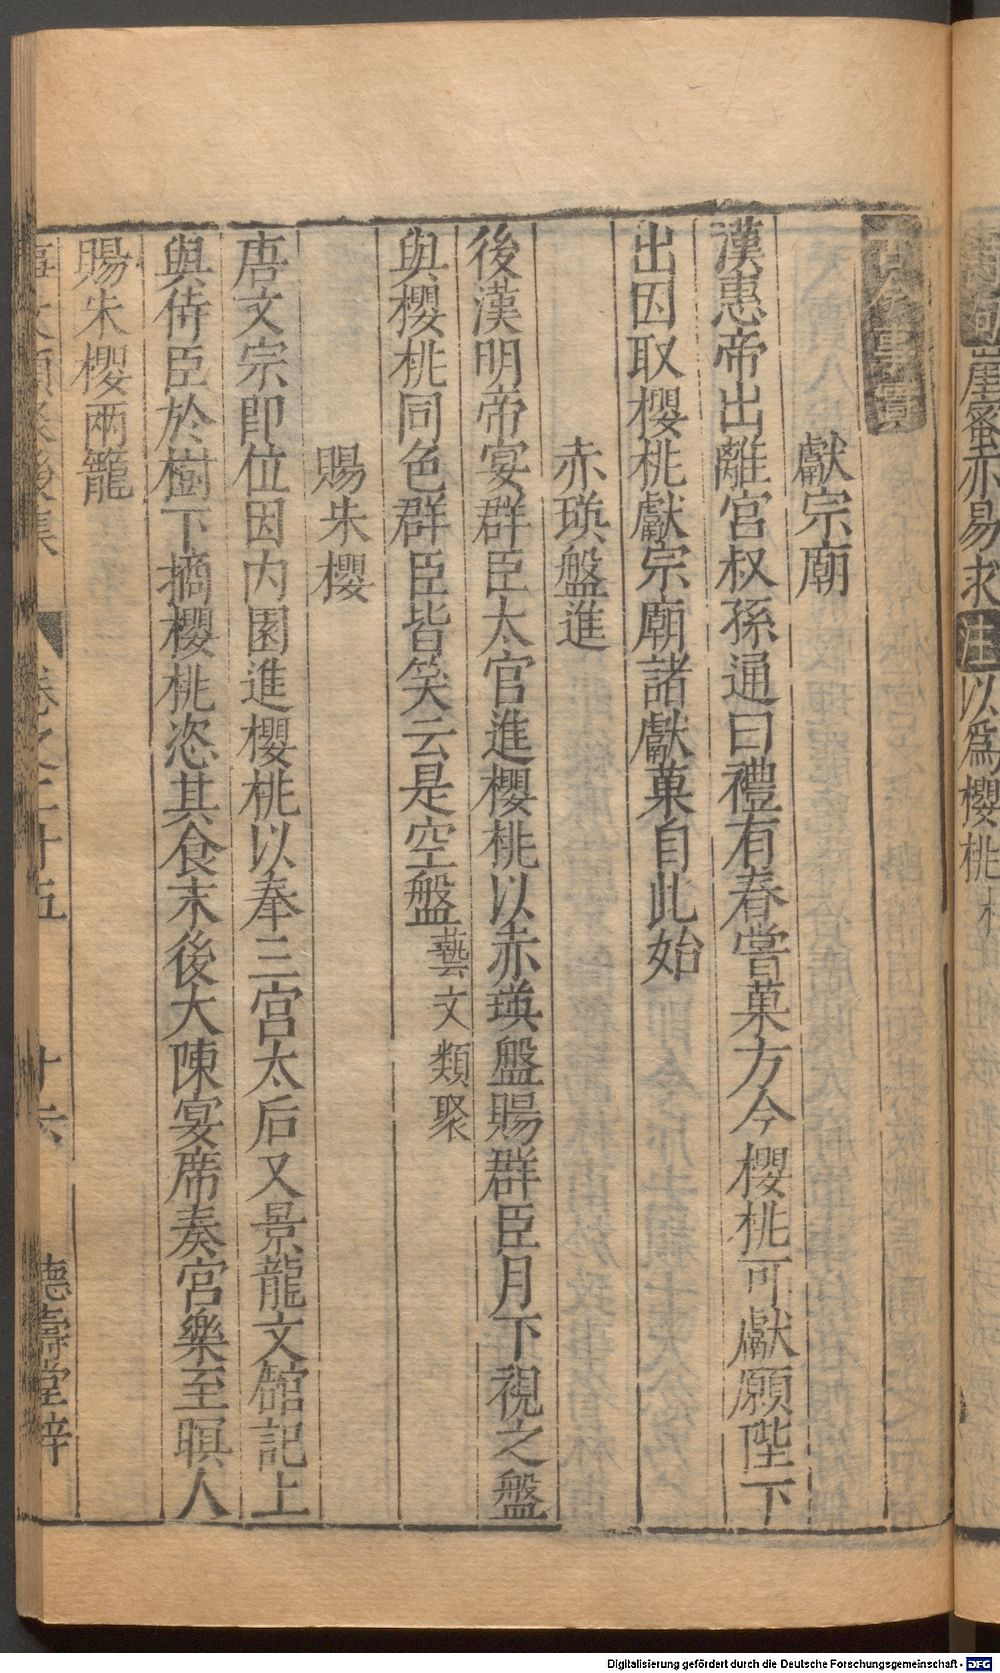 崖蜜赤易求注以爲櫻桃
古今事實
獻宗廟
漢惠帝出離宮叔孫通曰禮有春嘗菓方今櫻桃可獻願陛下
出因取櫻桃獻宗廟諸獻菓自此始
赤瑛盤進
後漢明帝宴群臣太官進櫻桃以赤瑛盤賜群臣月下視之盤
與櫻桃同色群臣皆笑云是空盤藝文類聚
賜朱櫻
唐文宗即位因内園進櫻桃以奉三宮太后又景龍文館記上
與侍臣於樹下摘櫻桃恣其食末後大陳宴席奏宮樂至暝人
賜朱櫻兩籠
事文類聚後集 卷之二十五 十六 德壽堂梓
Digitalisierung gefördert durch die Deutsche Forschungsgemeinschaft - DFG